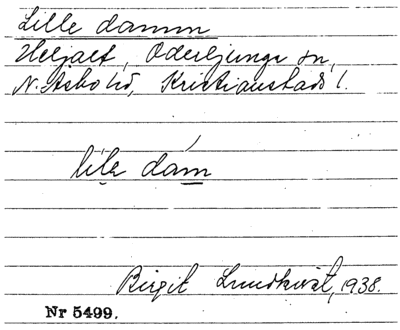 Lille damm
Heljalt, Oderljunga sn,
N. Åsbo hd, Kristianstads l.
lile dám
Birgit Lundkvist, 1938.
Nr 5499.